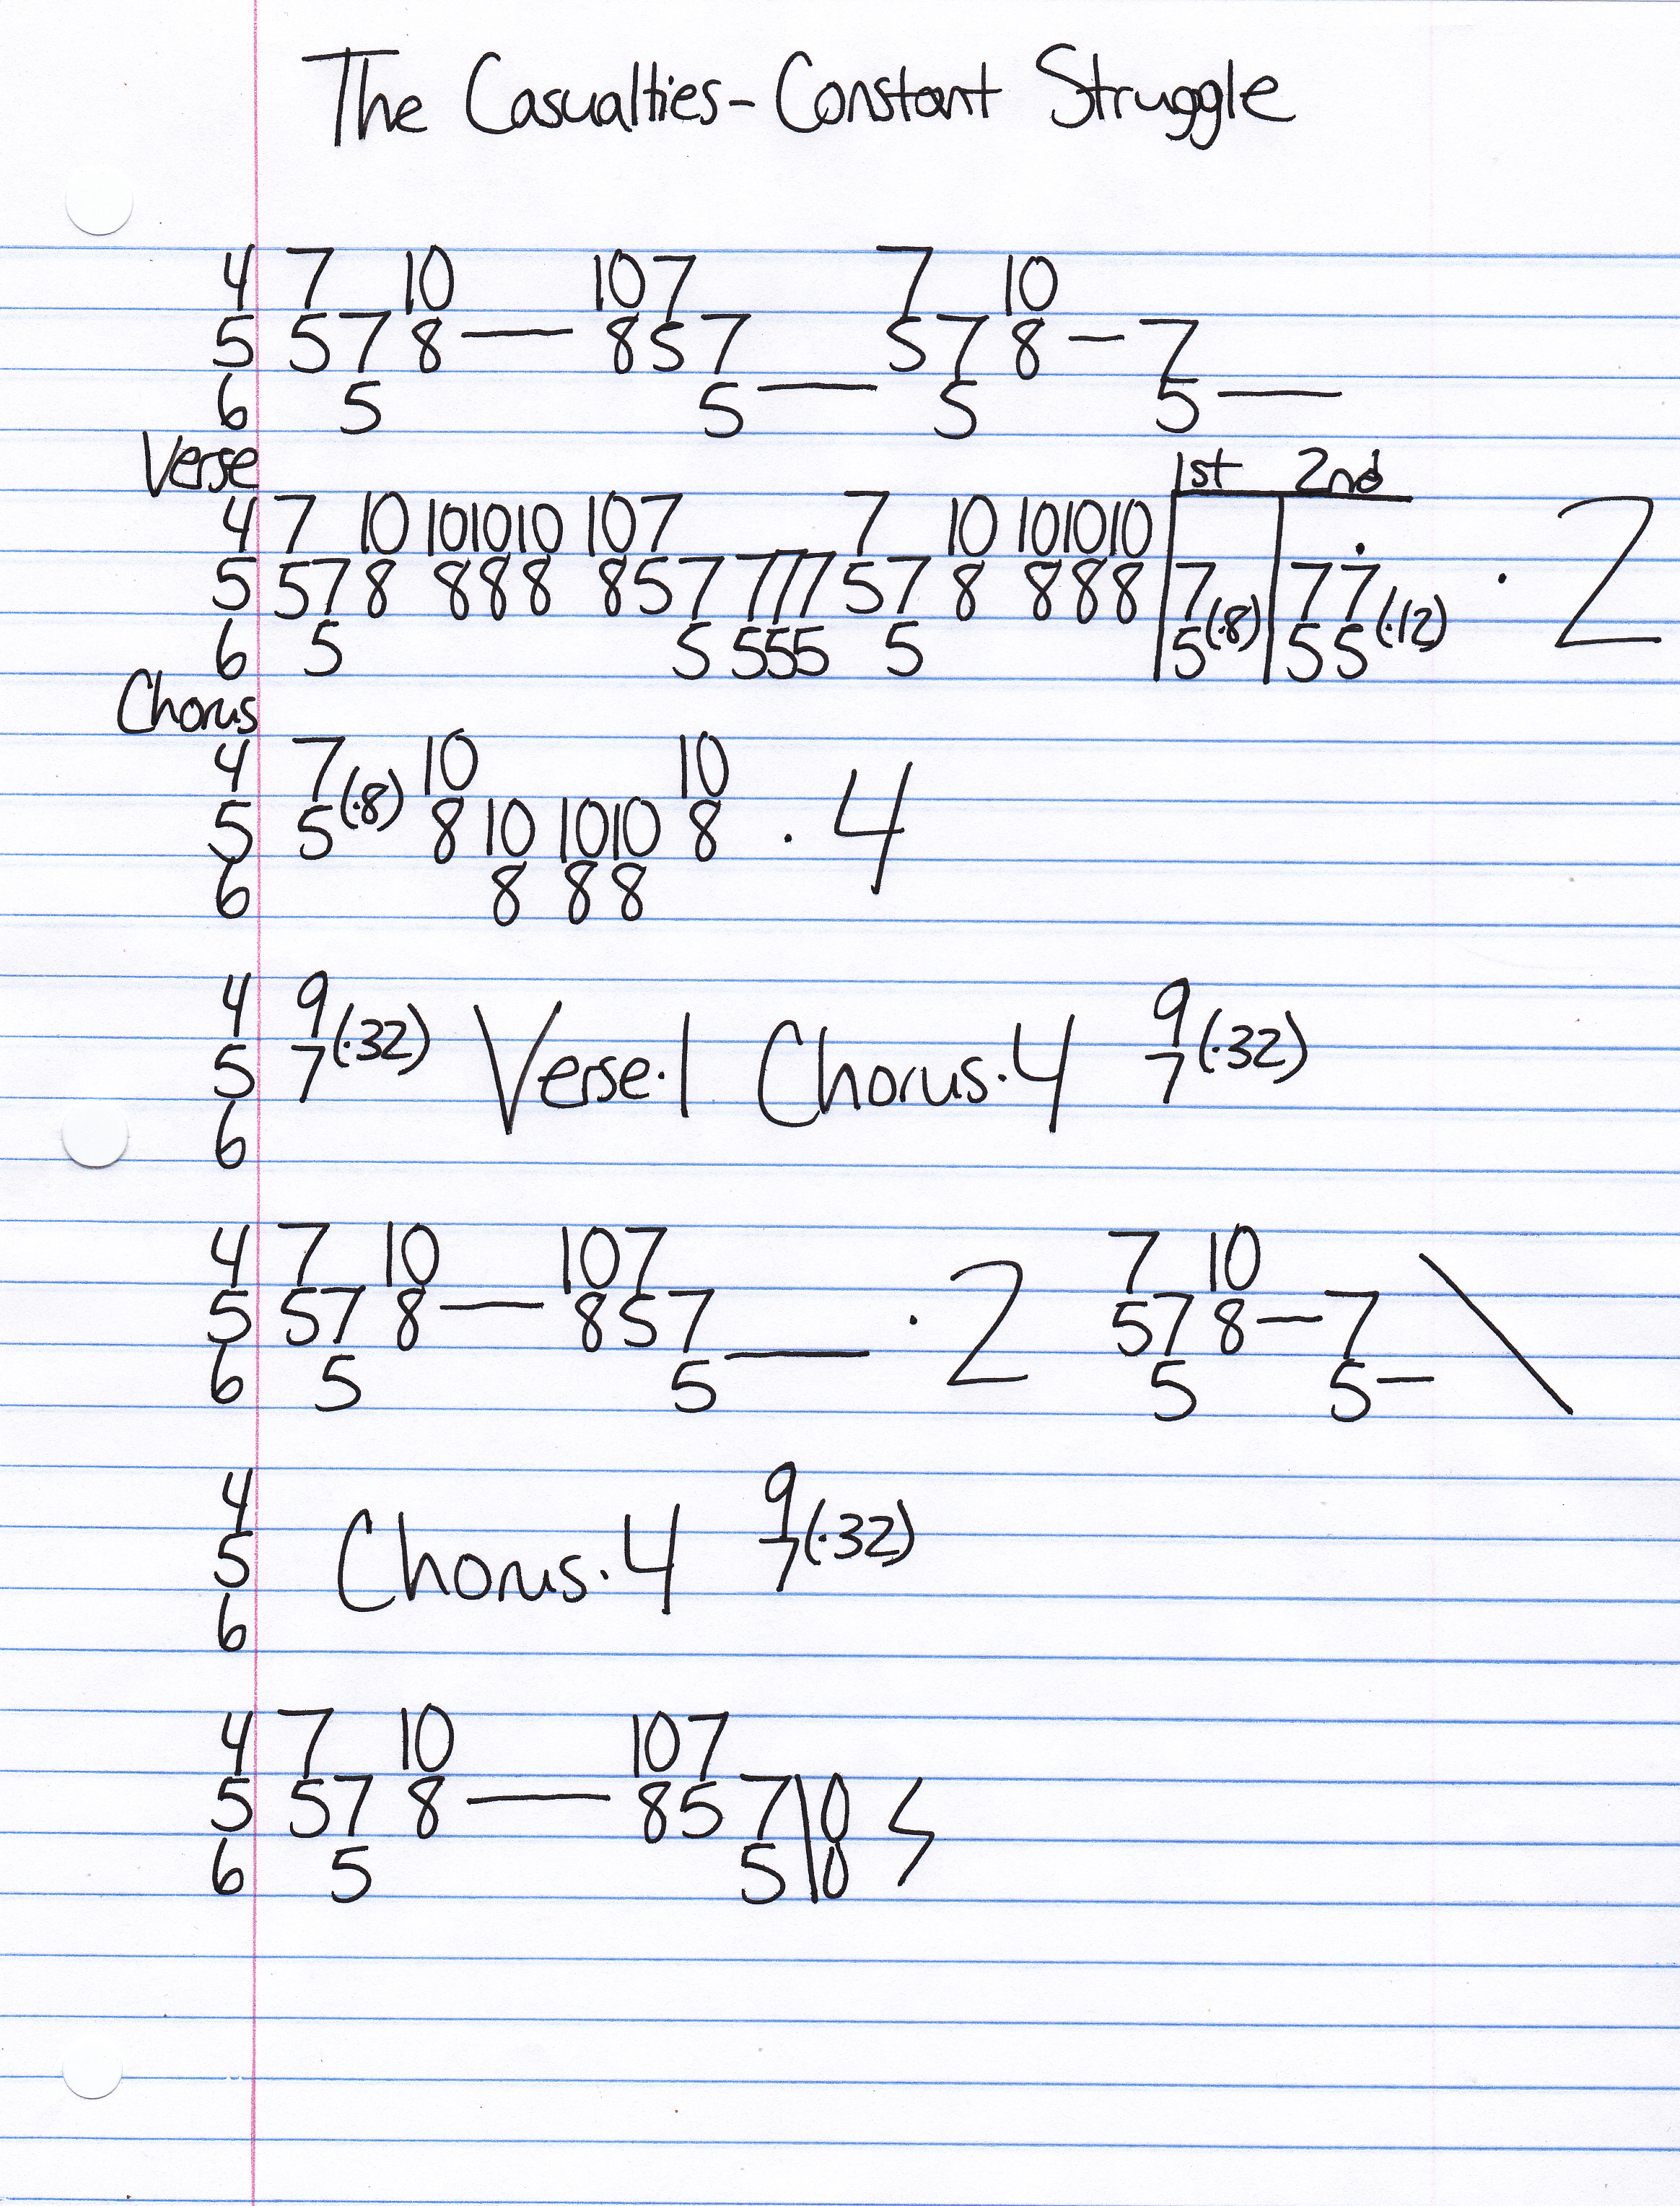 The Casualties - Constant Struggle
4 7 10 107 7 10
5 57 8 — 857 57 8 – 7
6 5 5 — 5 5 —
Verse 1st 2nd
4 7 10 101010 107 7 10 101010
5 578 888 857 777 57 8 888 7 77 · 2
6 5 5 555 5 5(·8) 55(·12)
Chorus
4 7 10 10
5 5(·8) 8 10 1010 8 · 4
6 8 88
4 9 9
5 7(·32) Verse·1 Chorus·4 7(·32)
6
4 7 10 107 7 10
5 57 8 — 857 · 2 57 8 – 7 \
6 5 5 — 5 5 –
4 9
5 Chorus·4 7(·32)
6
4 7 10 107
5 57 8 — 857 \ 0
6 5 5 0